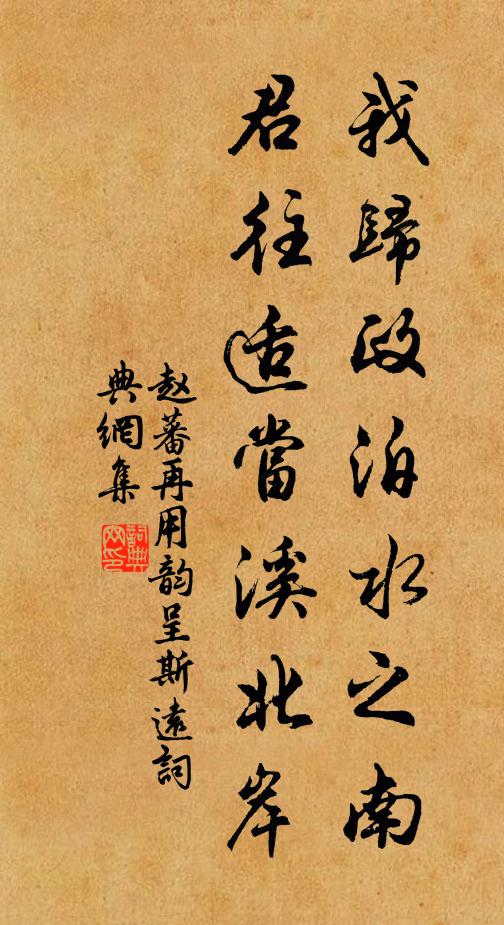 我歸政泊水之南
君往适當溪北岸
赵蕃再用韵呈斯遠詞
典網集
詞典網印